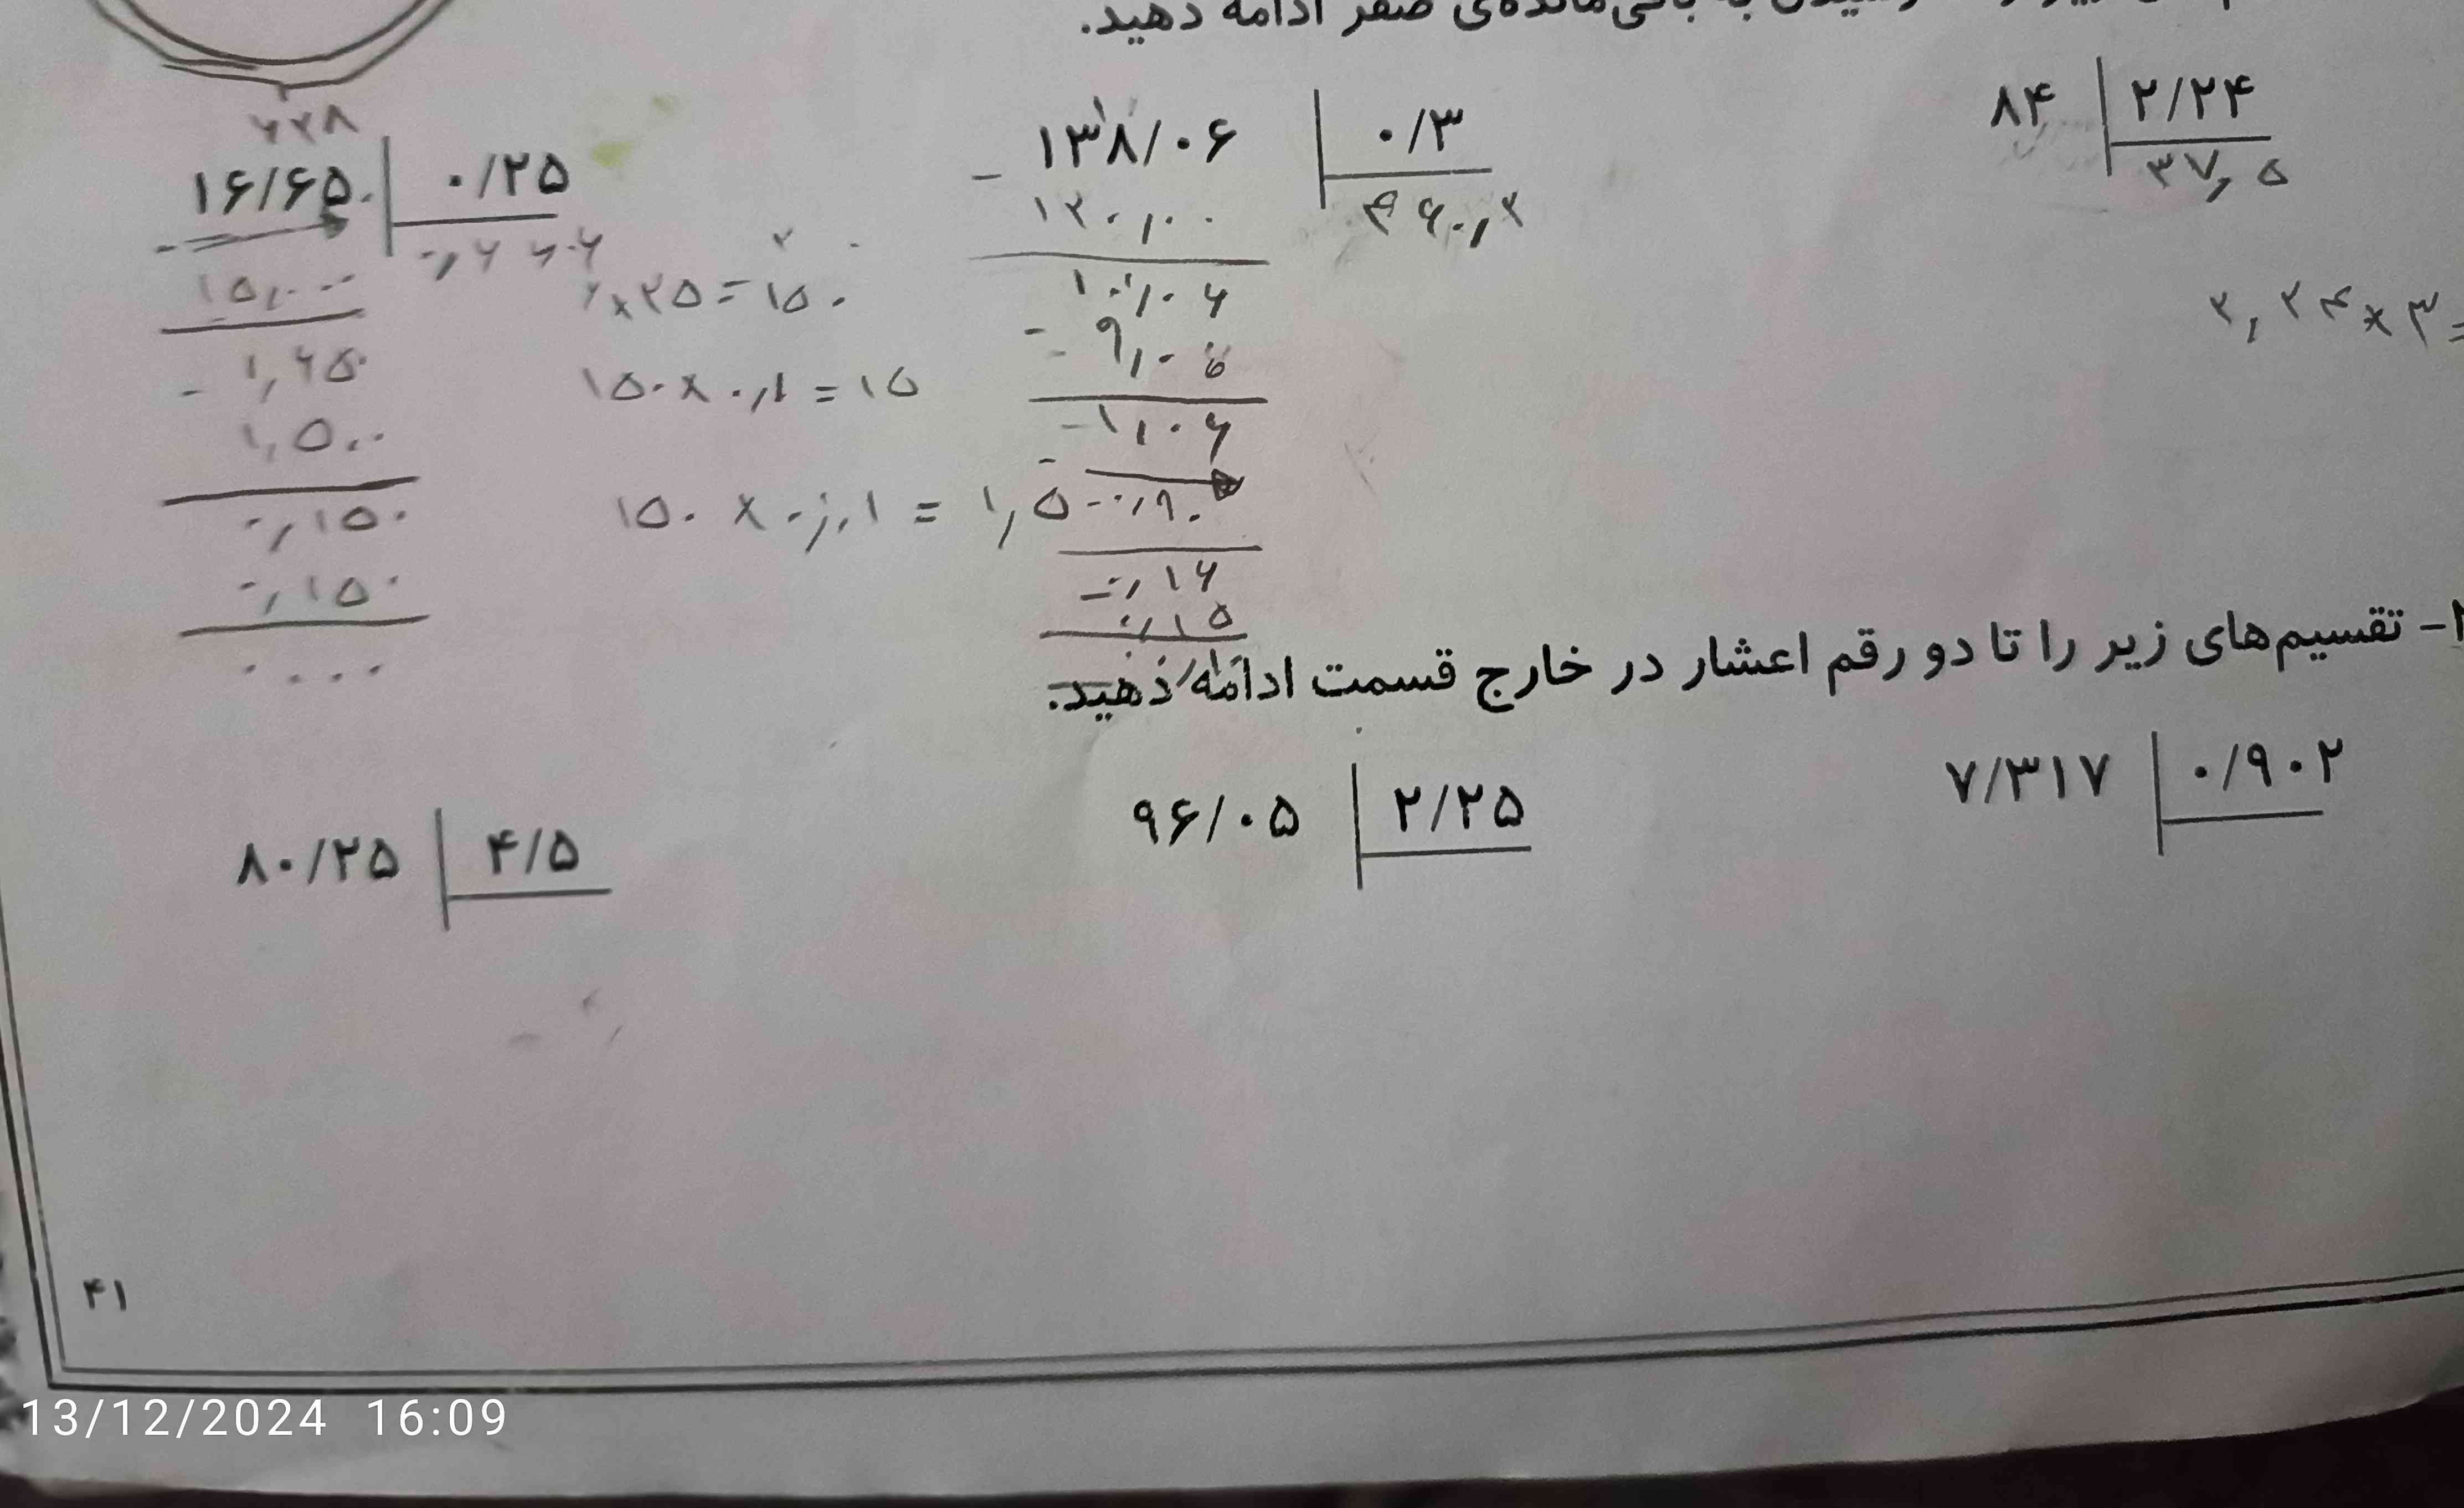 صفر ادامه دهید.
۸۴ | ۲/۲۴
۳۷٫۵
۲٫۲۴ × ۳ =
۱۳۸/۰۶ | ۰/۳
۱۲۰٫۰۰
۹٫۰۶
۱٫۰۶
۰٫۹۰
۰٫۱۶
۰٫۱۵
۱۶/۶۵۰ | ۰/۲۵
۱۵٫۰۰۰
۱٫۶۵۰
۱٫۵۰۰
۰٫۱۵۰
۰٫۱۵۰
۰۰۰۰
۶×۲۵=۱۵۰
۱۵۰×۰٫۱=۱۵
۱۵۰ × ۰٫۰۱ = ۱٫۵
- تقسیم‌های زیر را تا دو رقم اعشار در خارج قسمت ادامه دهید.
۷/۳۱۷ | ۰/۹۰۲
۹۶/۰۵ | ۲/۲۵
۸۰/۲۵ | ۴/۵
۴۱
13/12/2024 16:09